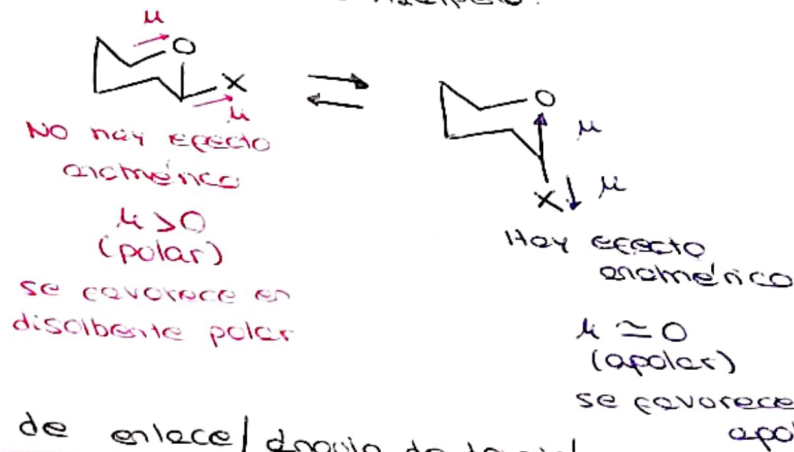 μ
O
X
μ
No hay efecto
anomérico
μ > 0
(polar)
se favorece en
disolbente polar
O
μ
X
μ
Hay efecto
anomérico
μ ≃ 0
(apolar)
se favorece
apol
de enlace/ ángulo de